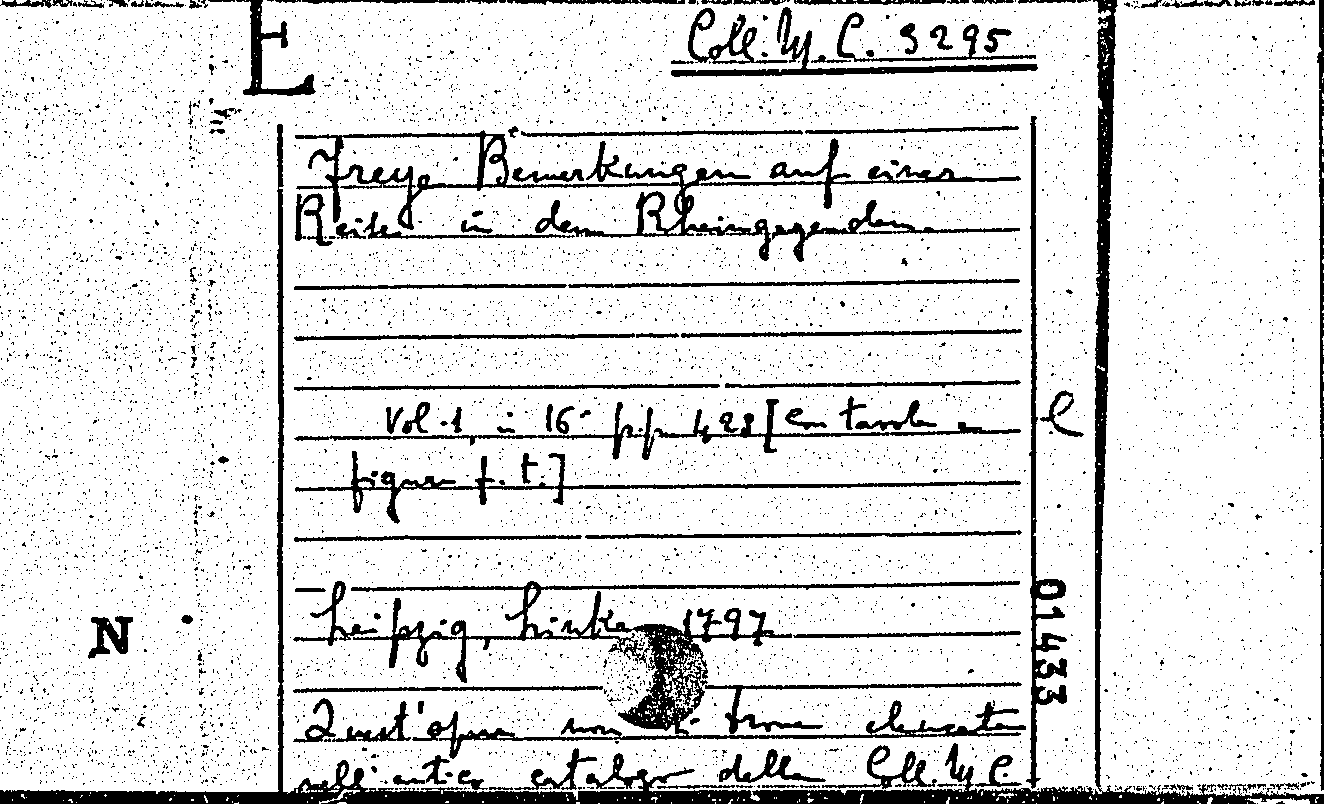 Coll. M. C. 3295
Freye Bemerkungen auf einer
Reise in den Rheingegenden.
Vol. 1, in 16° pp. 428 [con tavole e
figure f. t.]
l
Leipzig, Linke 1797
01433
N
Quest'opera non si trova elencata
nell'antico catalogo della Coll. M. C.